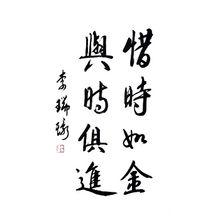 惜時如金
與時俱進
李瑞琦